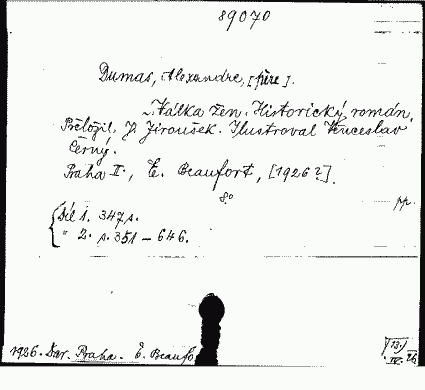 89070
Dumas, Alexandre, [père].
Válka žen. Historický román.
Přeložil J. Jiroušek. Ilustroval Věnceslav
Černý.
Praha II., E. Beaufort, [1926?].
8°
pp.
Díl 1. 347 s.
" 2. s. 351 – 646.
1926. Dar. Praha. E. Beaufo
13/IV. 26